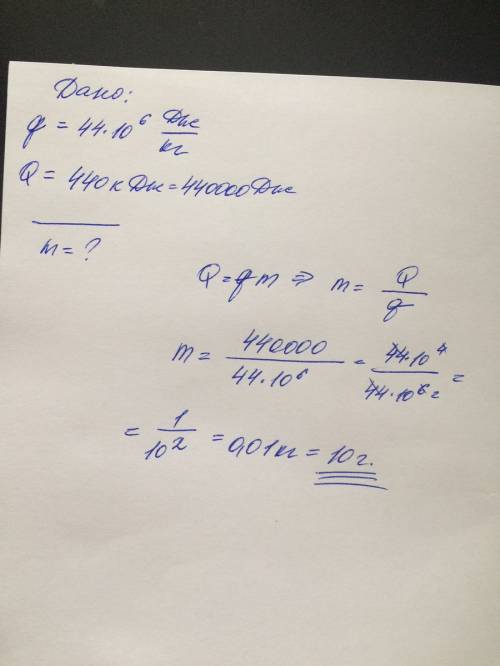 Дано:
q = 44·10⁶ Дж/кг
Q = 440кДж = 440000Дж
m = ?
Q = qm ⇒ m = Q/q
m = 440000/44·10⁶ = 44·10⁴/44·10⁶ =
= 1/10² = 0,01кг = 10г.